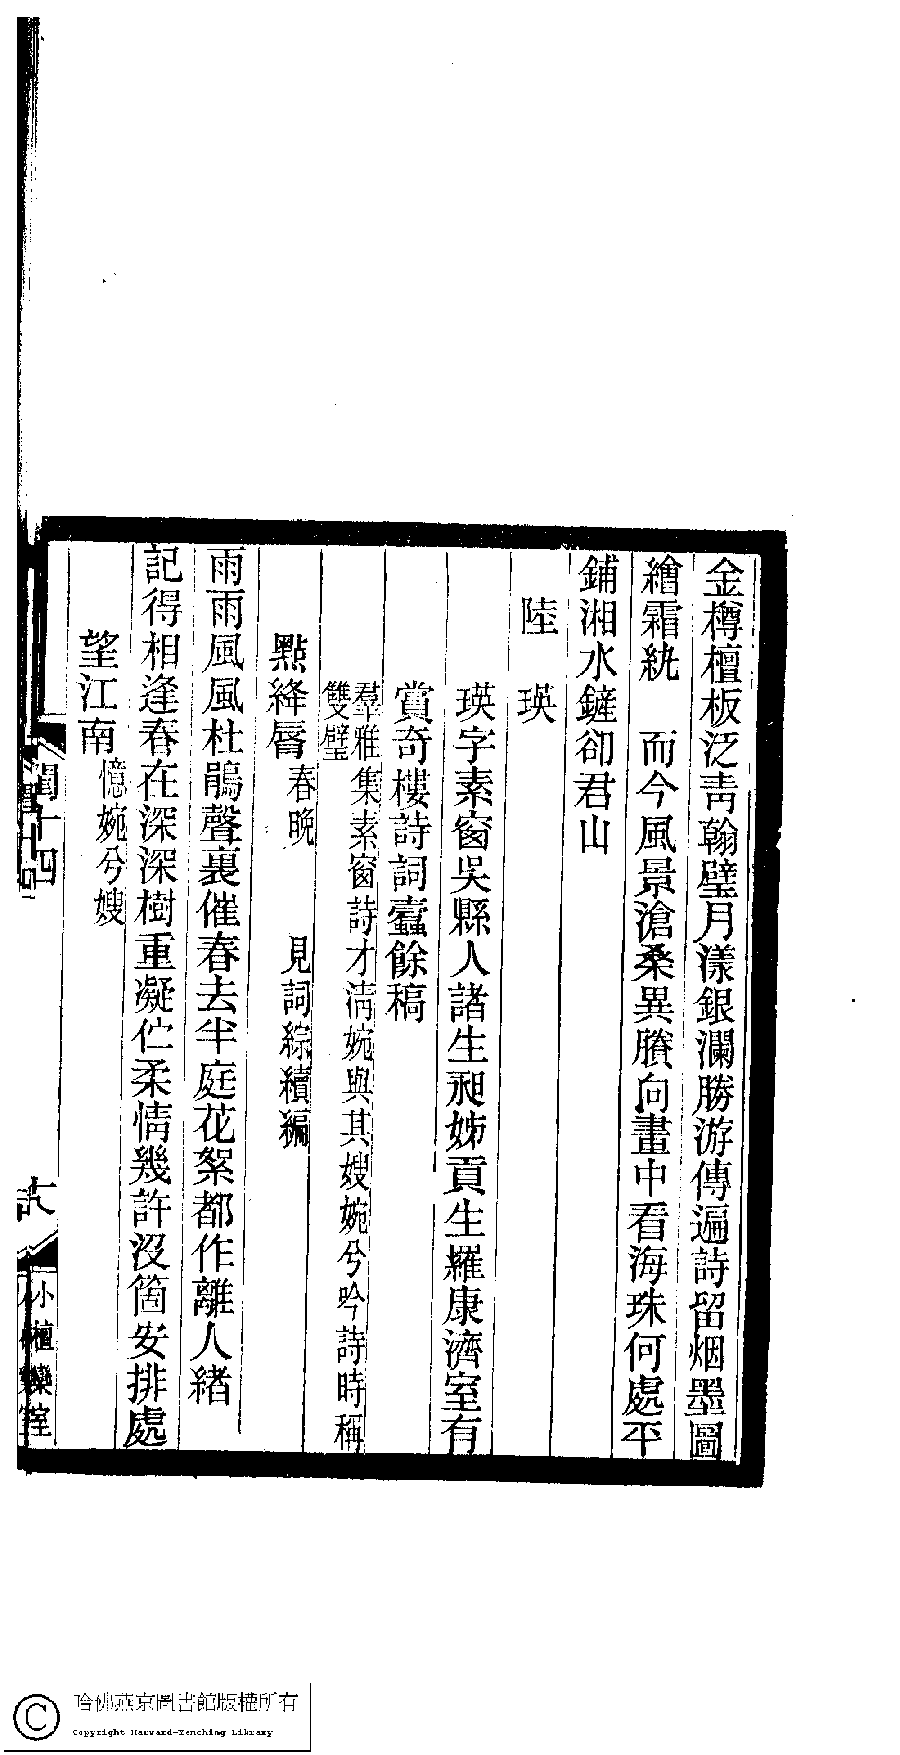 金樽檀板泛靑翰璧月漾銀瀾勝游傳遍詩留烟墨圖
繪霜紈　而今風景滄桑異賸向畫中看海珠何處平
鋪湘水鏟卻君山
陸　瑛
瑛字素窗吳縣人諸生昶姊貢生羅康濟室有
賞奇樓詩詞蠹餘稿
羣雅集素窗詩才淸婉與其嫂婉兮吟詩時稱
雙璧
點絳脣春晚　見詞綜續編
雨雨風風杜鵑聲裏催春去半庭花絮都作離人緒
記得相逢春在深深樹重凝伫柔情幾許沒箇安排處
望江南憶婉兮嫂
閨十四
小檀欒室
哈佛燕京圖書館版權所有
Copyright Harvard-Yenching Library